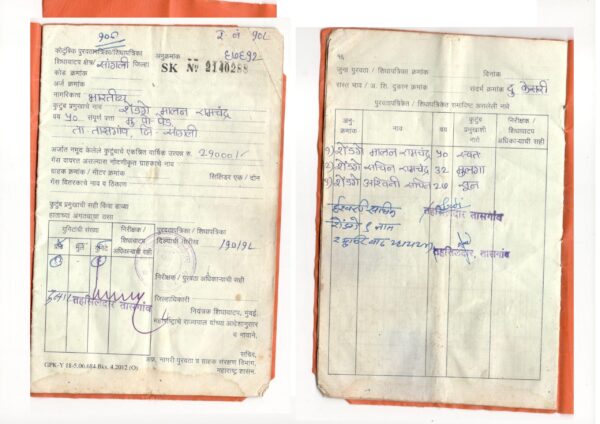 १०८
र. नं १०८
कौटुंबिक पुरवठापत्रिका/शिधापत्रिका
शिधावाटप क्षेत्र/ सांगली जिल्हा
अनुक्रमांक
कोड क्रमांक
SK № 2140288
अर्ज क्रमांक
नागरिकत्व भारतीय
कुटुंब प्रमुखाचे नाव शेंडगे मालन रामचंद्र
वय ५० संपूर्ण पत्ता मु. पो. पेड
ता तासगांव, जि. सांगली
अर्जात नमूद केलेले कुटुंबाचे एकत्रित वार्षिक उत्पन्न रु. 29000/-
गॅस वापरत असल्यास नोंदणीकृत ग्राहकाचे नाव
ग्राहक क्रमांक / मीटर क्रमांक सिलिंडर एक / दोन
गॅस वितरकाचे नाव व ठिकाण
कुटुंब प्रमुखाची सही किंवा डाव्या
हाताच्या अंगठ्याचा ठसा
युनिटांची संख्या
निरीक्षक /
शिधावाटप
अधिकाऱ्याची सही
पुरवठापत्रिका / शिधापत्रिका
दिल्याची तारीख
निरीक्षक / पुरवठा अधिकाऱ्याची सही
तहसिलदार तासगांव
जिल्हाधिकारी
नियंत्रक शिधावाटप, मुंबई.
महाराष्ट्राचे राज्यपाल यांच्या आदेशानुसार
व नावाने.
सचिव,
अन्न, नागरी पुरवठा व ग्राहक संरक्षण विभाग,
महाराष्ट्र शासन.
GPK-Y 18-5,06,684 Bks. 4.2012 (O)
१६
जुना पुरवठा / शिधापत्रिका क्रमांक दिनांक
रास्त भाव / अ. शि. दुकान क्रमांक संदर्भ क्रमांक दु केसरी
पुरवठापत्रिकेत / शिधापत्रिकेत समाविष्ट असलेली नावे
अनु-
क्रमांक
नाव
वय
कुटुंब
प्रमुखाशी
नाते
निरीक्षक /
शिधावाटप
अधिकाऱ्याची सही
१) शेंडगे मालन रामचंद्र ५० स्वतः
२) शेंडगे सचिन रामचंद्र 32 मुलगा
३) शेंडगे अश्विनी सचिन 26 सून
तहसिलदार तासगांव
शेंडगे
तहसिलदार, तासगांव